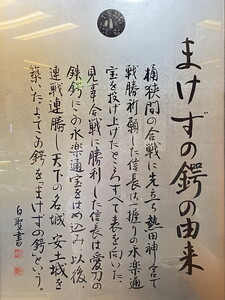 まけずの鍔の由来
桶狭間の合戦に先立ち、熱田神宮で
戦勝祈願した信長は一握りの永楽通
宝を投げ上げたところすべて表を向いた。
見事合戦に勝利した信長は愛刀の
鉄鍔にこの永楽通宝をはめ込み、以後、
連戦連勝し天下の名城、安土城を
築いた。よってこの鍔を「まけずの鍔」という。
白聖書